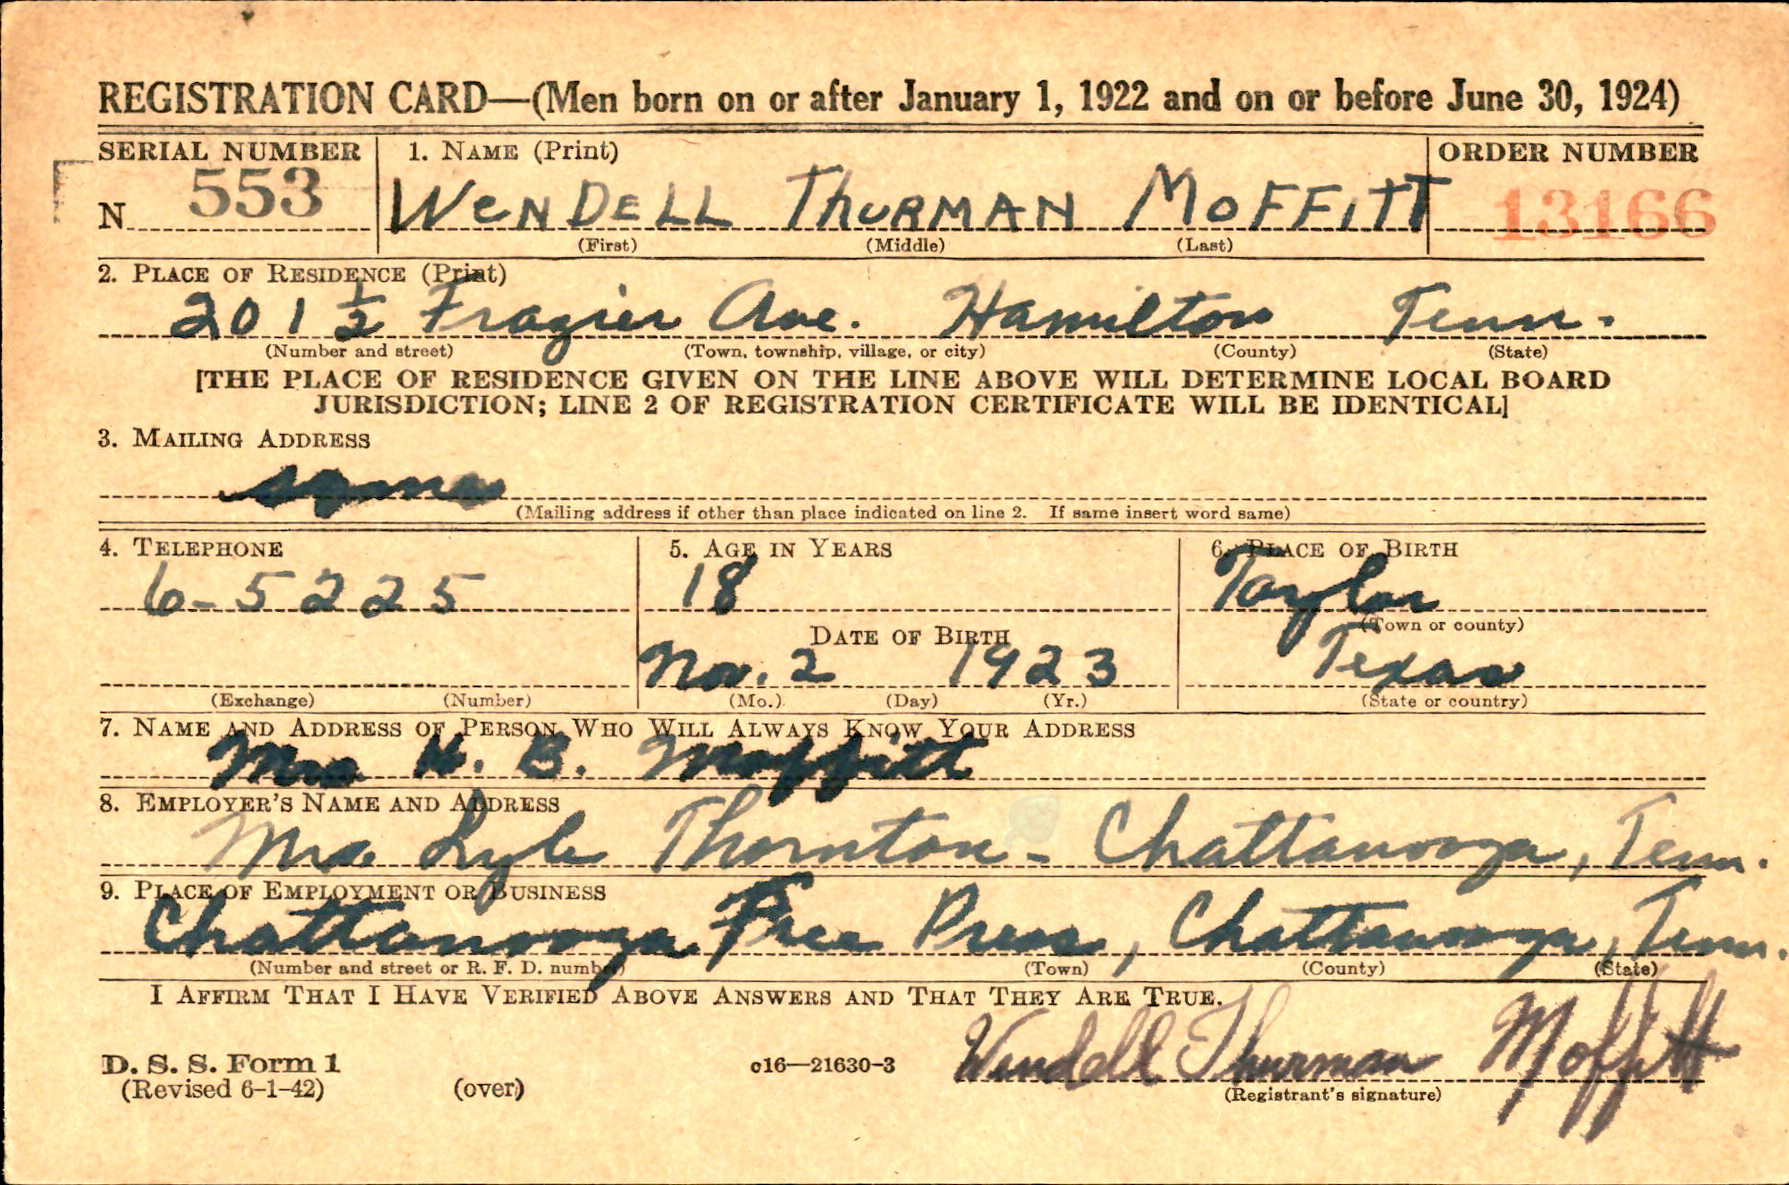 REGISTRATION CARD—(Men born on or after January 1, 1922 and on or before June 30, 1924)
SERIAL NUMBER 1. NAME (Print) ORDER NUMBER
N 553 WENDELL THURMAN MOFFITT 13166
(First) (Middle) (Last)
2. PLACE OF RESIDENCE (Print)
201 1/2 Frazier Ave. Hamilton Tenn.
(Number and street) (Town, township, village, or city) (County) (State)
[THE PLACE OF RESIDENCE GIVEN ON THE LINE ABOVE WILL DETERMINE LOCAL BOARD
JURISDICTION; LINE 2 OF REGISTRATION CERTIFICATE WILL BE IDENTICAL]
3. MAILING ADDRESS
same
(Mailing address if other than place indicated on line 2. If same insert word same)
4. TELEPHONE 5. AGE IN YEARS 6. PLACE OF BIRTH
6-5225 18 Taylor
(Town or county)
DATE OF BIRTH
Nov. 2 1923 Texas
(Exchange) (Number) (Mo.) (Day) (Yr.) (State or country)
7. NAME AND ADDRESS OF PERSON WHO WILL ALWAYS KNOW YOUR ADDRESS
Mrs H. B. Moffitt
8. EMPLOYER'S NAME AND ADDRESS
Mrs. Lyle Thornton - Chattanooga, Tenn.
9. PLACE OF EMPLOYMENT OR BUSINESS
Chattanooga Free Press, Chattanooga, Tenn.
(Number and street or R. F. D. number) (Town) (County) (State)
I AFFIRM THAT I HAVE VERIFIED ABOVE ANSWERS AND THAT THEY ARE TRUE.
D. S. S. Form 1 c16—21630-3 Wendell Thurman Moffitt
(Revised 6-1-42) (over) (Registrant's signature)